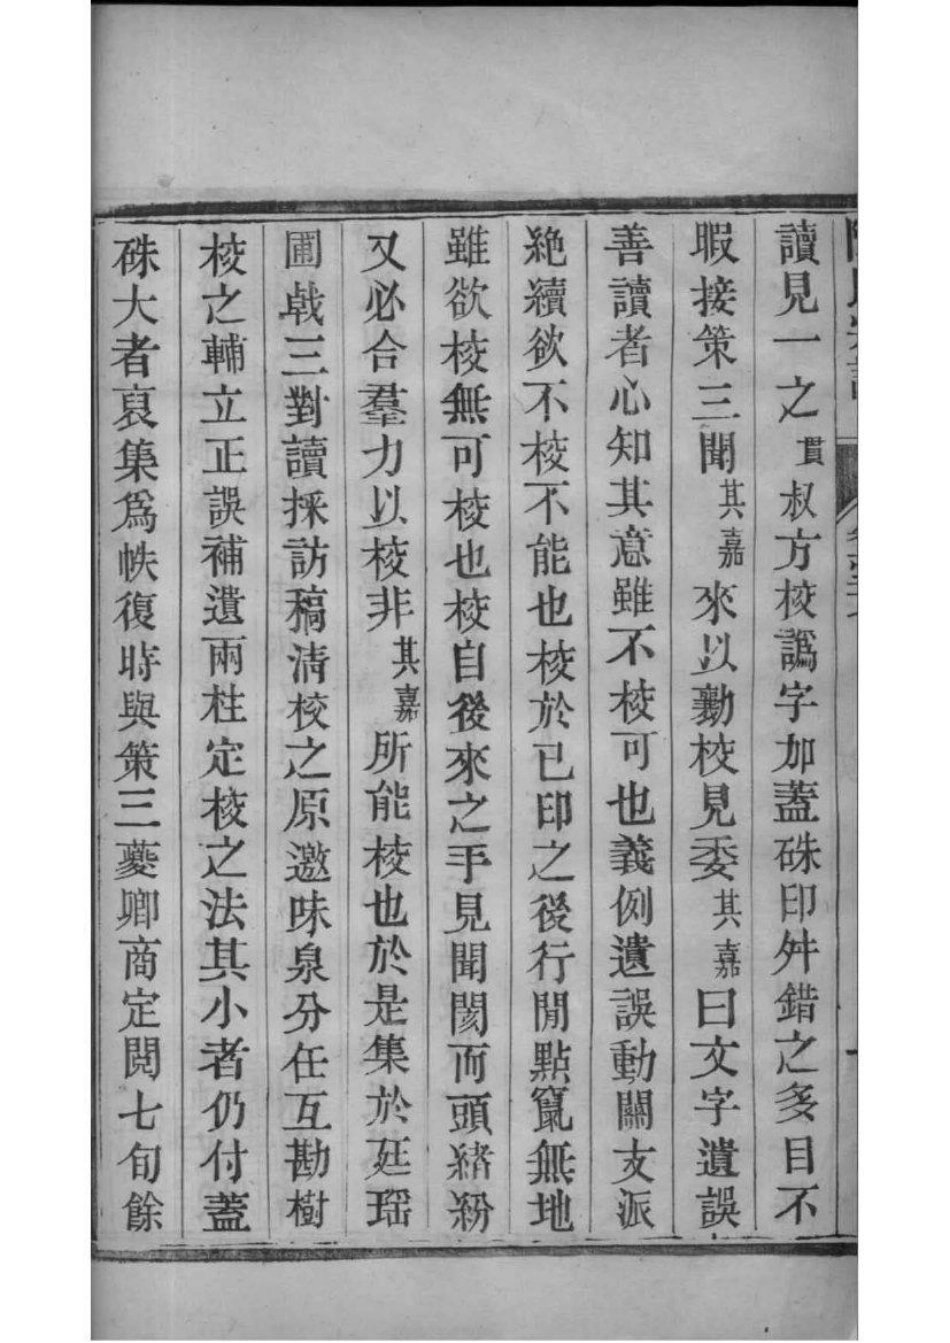 讀見一之貫叔方校譌字加蓋硃印舛錯之多目不
暇接策三聞其嘉來以勷校見委其嘉曰文字遺誤
善讀者心知其意雖不校可也義例遺誤動關支派
絶續欲不校不能也校於已印之後行閒點竄無地
雖欲校無可校也校自後來之手見聞闋而頭緒紛
又必合羣力以校非其嘉所能校也於是集於廷瑶
圃戟三對讀採訪稿淸校之原邀味泉分任互勘樹
校之輔立正誤補遺兩柱定校之法其小者仍付蓋
硃大者裒集爲帙復時與策三夔卿商定閱七旬餘